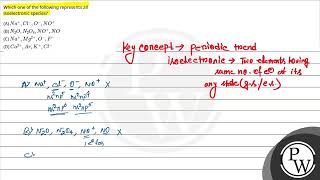 Which one of the following represents all
isoelectronic species?
(A) Na⁺, Cl⁻, O⁻, NO⁺
(B) N₂O, N₂O₄, NO⁺, NO
(C) Na⁺, Mg²⁺, O⁻, F⁻
(D) Ca²⁺, Ar, K⁺, Cl⁻
key concept → periodic trend
isoelectronic → Two elements having
same no. of e⊖ at its
any state (g.s/e.s)
A) Na⁺, Cl⁻, O⁻, NO⁺ X
B) N₂O, N₂O₄, NO⁺, NO X
1e⊖ loss
PW